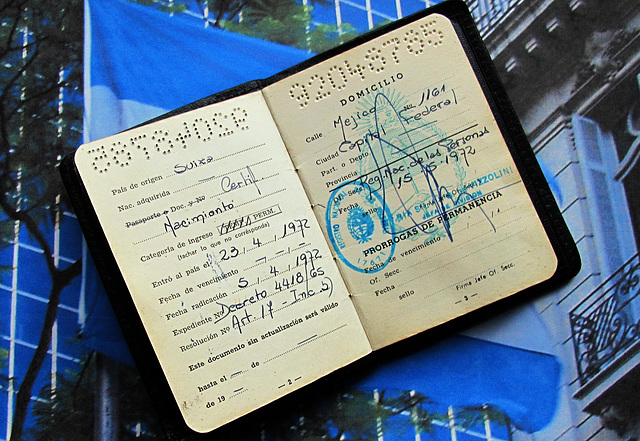 Pais de origen Suiza
Nac. adquirida
Pasaporte - Doc. y No Certif.
Nacimiento
Categoría de ingreso PERM.
(tachar lo que no corresponda)
Entró al país el 23 / 4 / 1972
Fecha de vencimiento — — —
Fecha radicación 5 / 4 / 1972
Expediente Nº Decreto 4418/65
Resolución Nº Art. 17 - Inc. 5)
Este documento sin actualización será válido
hasta el — de —
de 19 —
— 2 —
92048785
DOMICILIO
Calle Mejico No 1161
Ciudad Capital Federal
Part. o Depto
Provincia Reg. Nac. de las Personas
Of. Secc.
Fecha 15 1972
sello
PRORROGAS DE PERMANENCIA
Fecha de vencimiento / /
Of. Secc.
Fecha
sello
Firma Jefe Of. Secc.
— 3 —